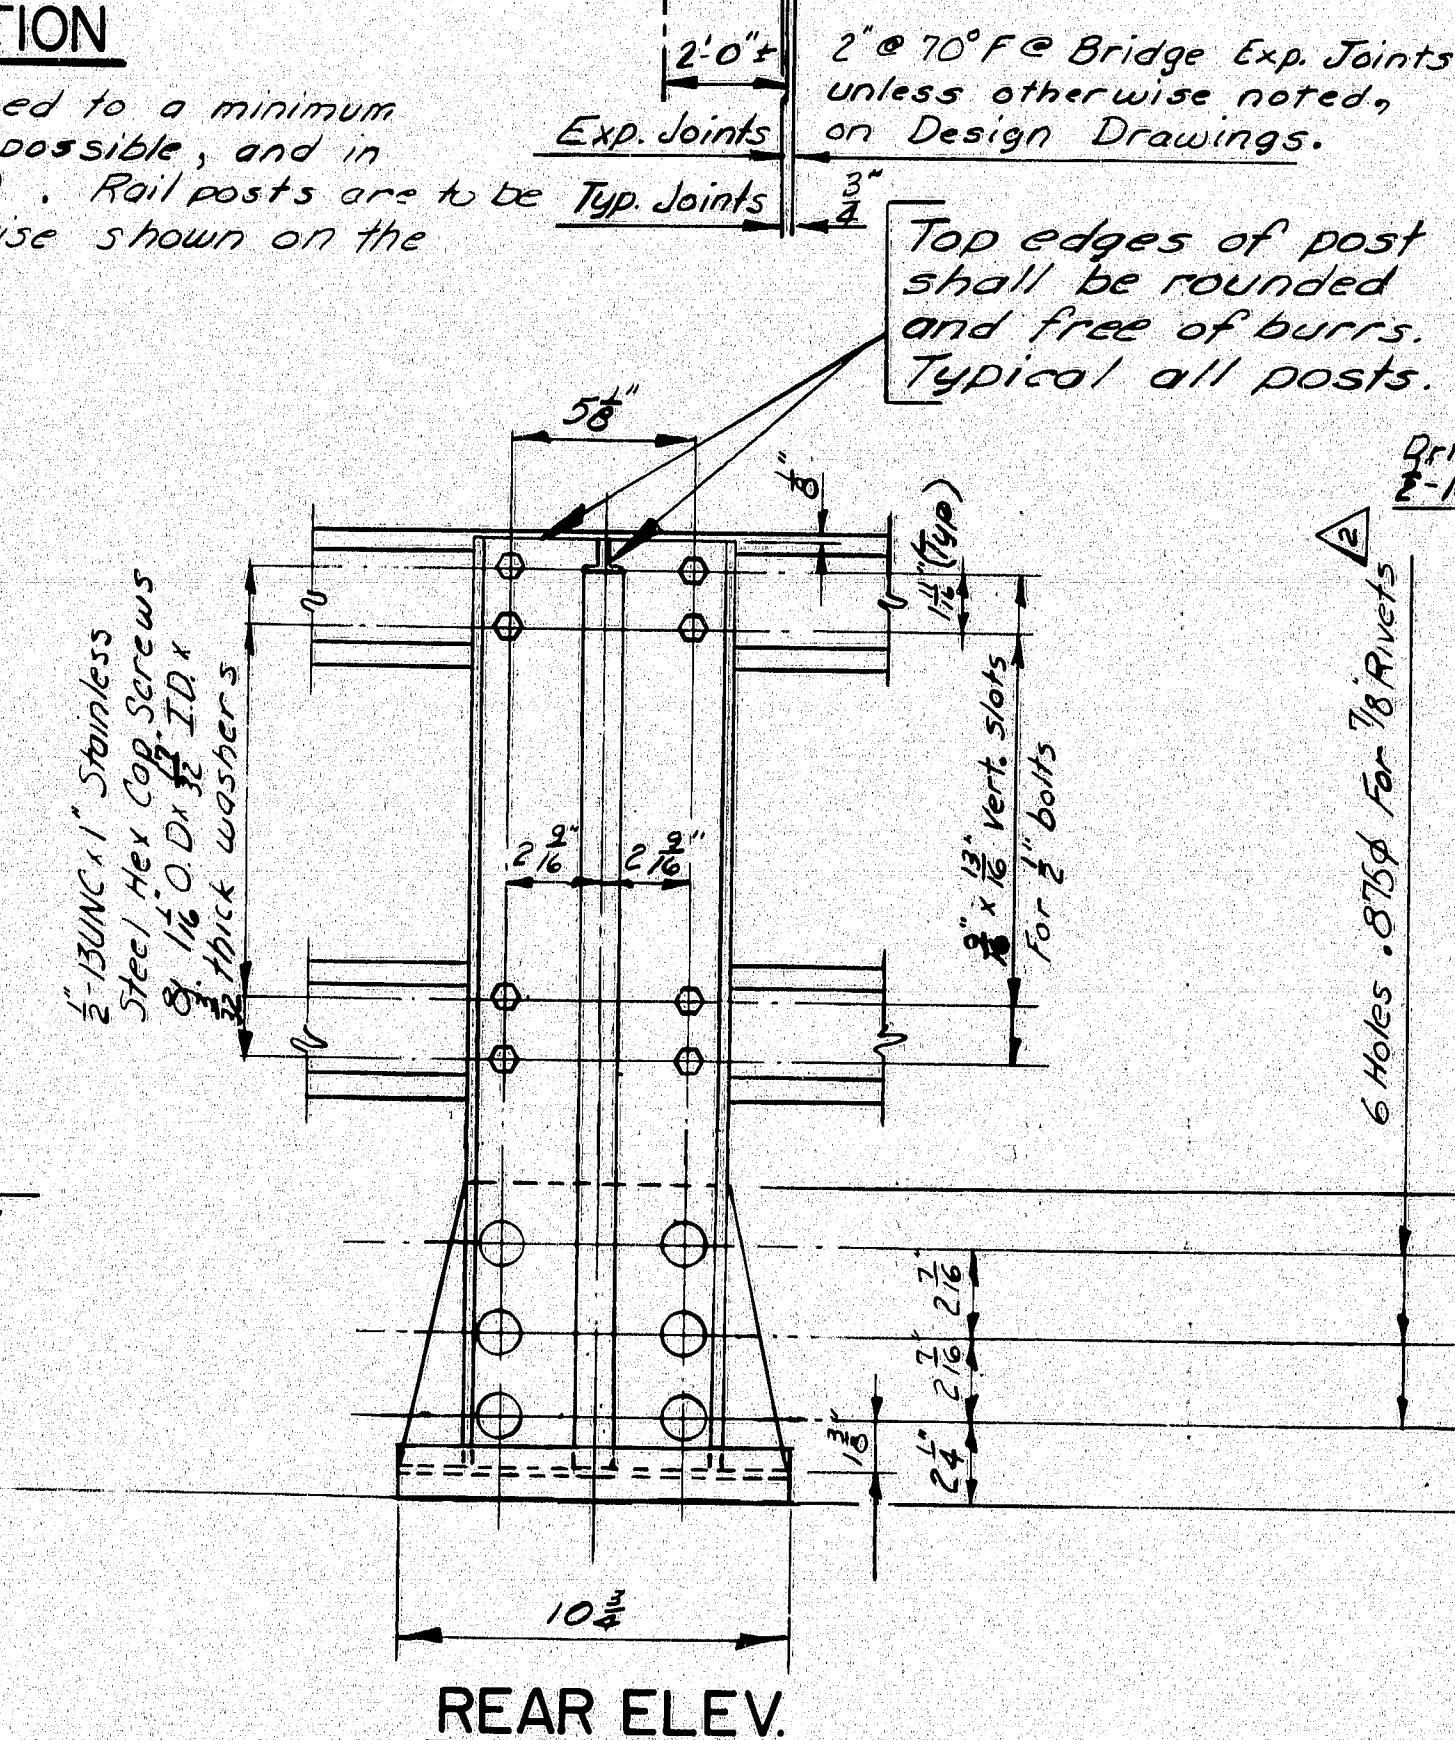 TION
ed to a minimum
possible, and in
. Rail posts are to be
ise shown on the
2'-0"±
2" @ 70° F @ Bridge Exp. Joints
unless otherwise noted,
on Design Drawings.
Exp. Joints
Typ. Joints
3/4"
Top edges of post
shall be rounded
and free of burrs.
Typical all posts.
5 1/8"
1/8"
1 11/16" (Typ)
Dri
2
1/2"-13UNC x 1" Stainless
Steel Hex Cap Screws
8 1 1/16" O.D x 17/32" I.D. x
3/32" thick washers
2 9/16"
2 9/16"
9/16" x 13/16" vert. slots
For 1/2" bolts
6 Holes .875ø For 7/8" Rivets
2 7/16"
2 7/16"
2 1/4"
1 3/8"
10 3/4
REAR ELEV.